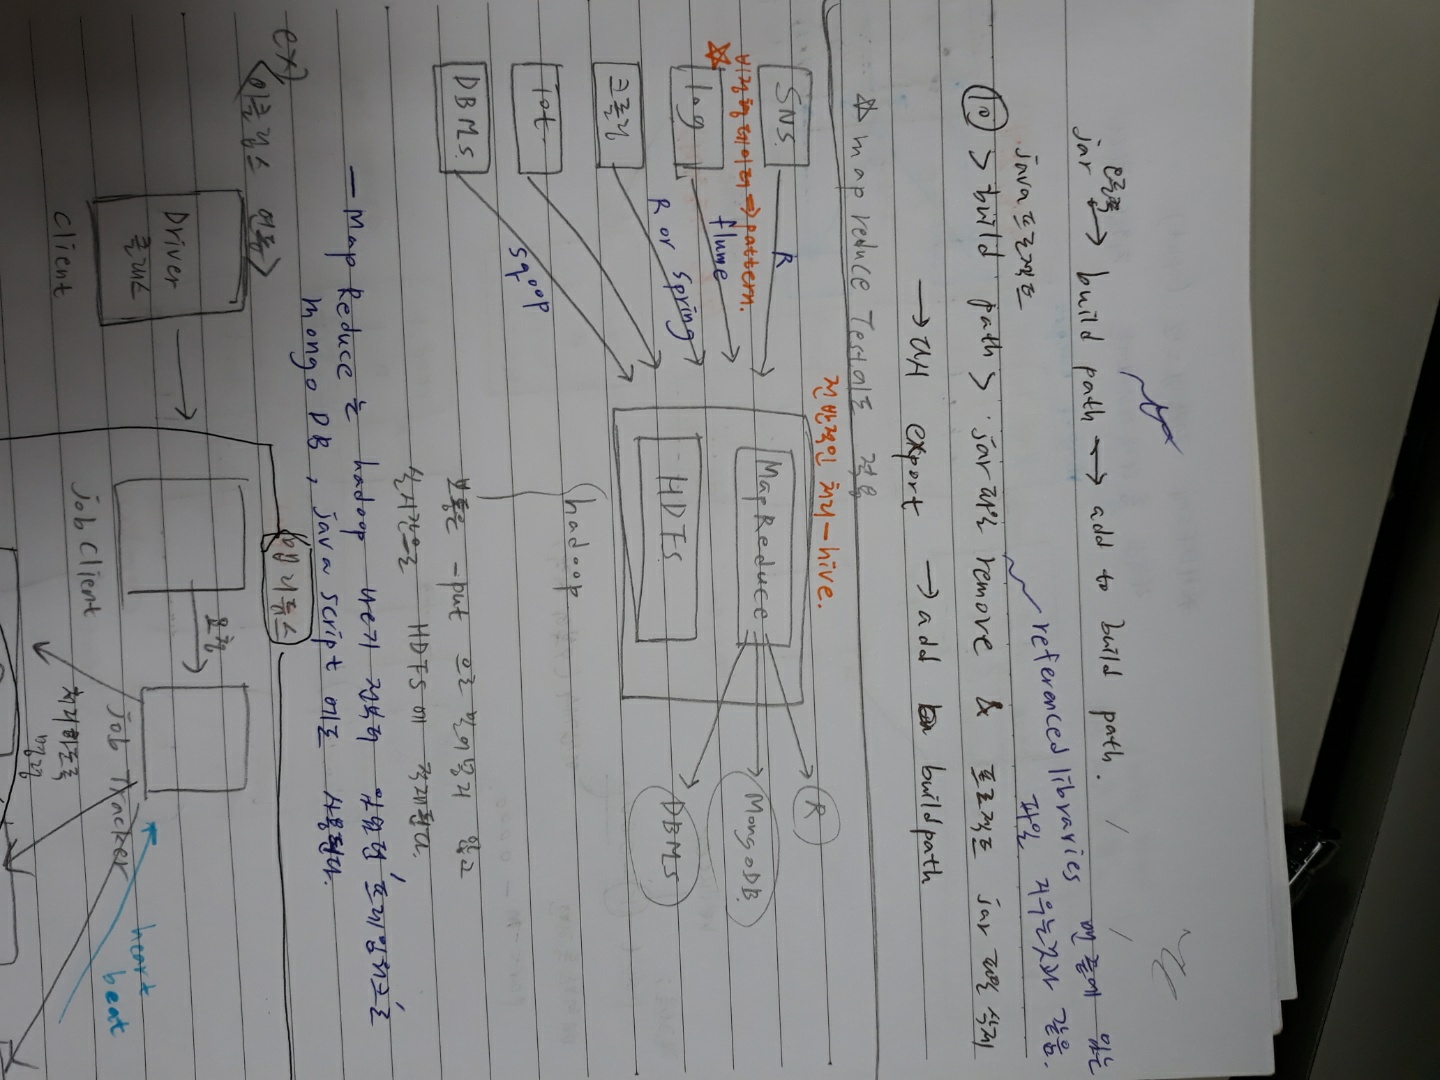 오른쪽
jar → build path → add to build path.
referenced libraries 맨 끝에 있는
파일 지우는것과 같음.
java 프로젝트
⑩ > build path > jar 파일 remove & 프로젝트 jar 파일 삭제
→ 다시 export → add buildpath
☆ map reduce Test에도 적용
전반적인 처리 - hive.
SNS
R
비정형데이터 → pattern.
☆
log
flume
크롤링
R or spring
iot
DBMS
sqoop
MapReduce
HDFS
R
MongoDB
DBMS
hadoop
보통은 -put 으로 밀어넣지 않고
실시간으로 HDFS에 적재된다.
- Map Reduce는 hadoop 나오기 전부터 있었던 '프레임워크'로
mongo DB, java script 에도 사용된다.
ex)
<이클립스 연동>
맵리듀스
Driver
클래스
client
요청
job client
job Tracker
heart
beat
처리하도록
명령